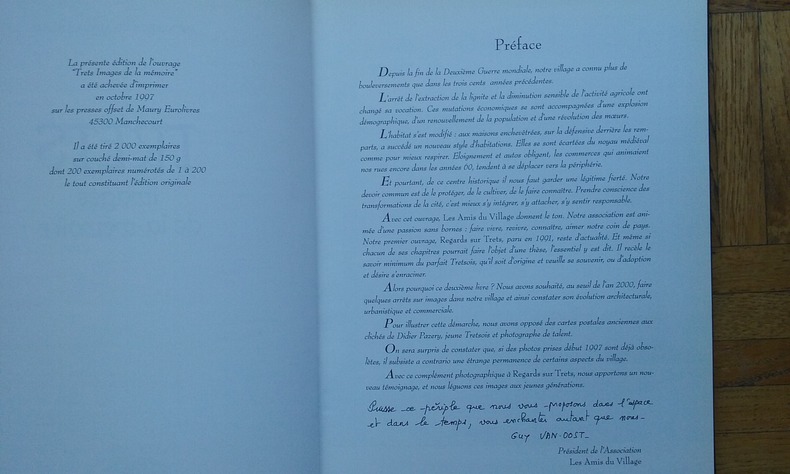 La présente édition de l'ouvrage
"Trets Images de la mémoire"
a été achevée d'imprimer
en octobre 1997
sur les presses offset de Maury Eurolivres
45300 Manchecourt
Il a été tiré 2 000 exemplaires
sur couché demi-mat de 150 g
dont 200 exemplaires numérotés de 1 à 200
le tout constituant l'édition originale
Préface
Depuis la fin de la Deuxième Guerre mondiale, notre village a connu plus de
bouleversements que dans les trois cents années précédentes.
L'arrêt de l'extraction de la lignite et la diminution sensible de l'activité agricole ont
changé sa vocation. Ces mutations économiques se sont accompagnées d'une explosion
démographique, d'un renouvellement de la population et d'une révolution des mœurs.
L'habitat s'est modifié : aux maisons enchevêtrées, sur la défensive derrière les rem-
parts, a succédé un nouveau style d'habitations. Elles se sont écartées du noyau médiéval
comme pour mieux respirer. Eloignement et autos obligent, les commerces qui animaient
nos rues encore dans les années 60, tendent à se déplacer vers la périphérie.
Et pourtant, de ce centre historique il nous faut garder une légitime fierté. Notre
devoir commun est de le protéger, de le cultiver, de le faire connaître. Prendre conscience des
transformations de la cité, c'est mieux s'y intégrer, s'y attacher, s'y sentir responsable.
Avec cet ouvrage, Les Amis du Village donnent le ton. Notre association est ani-
mée d'une passion sans bornes : faire vivre, revivre, connaître, aimer notre coin de pays.
Notre premier ouvrage, Regards sur Trets, paru en 1991, reste d'actualité. Et même si
chacun de ses chapitres pourrait faire l'objet d'une thèse, l'essentiel y est dit. Il recèle le
savoir minimum du parfait Tretsois, qu'il soit d'origine et veuille se souvenir, ou d'adoption
et désire s'enraciner.
Alors pourquoi ce deuxième livre ? Nous avons souhaité, au seuil de l'an 2000, faire
quelques arrêts sur images dans notre village et ainsi constater son évolution architecturale,
urbanistique et commerciale.
Pour illustrer cette démarche, nous avons opposé des cartes postales anciennes aux
clichés de Didier Pazery, jeune Tretsois et photographe de talent.
On sera surpris de constater que, si des photos prises début 1997 sont déjà obso-
lètes, il subsiste a contrario une étrange permanence de certains aspects du village.
Avec ce complément photographique à Regards sur Trets, nous apportons un nou-
veau témoignage, et nous léguons ces images aux jeunes générations.
Puisse ce périple que nous vous proposons dans l'espace
et dans le temps, vous enchanter autant que nous-
GUY VAN-OOST-
Président de l'Association
Les Amis du Village